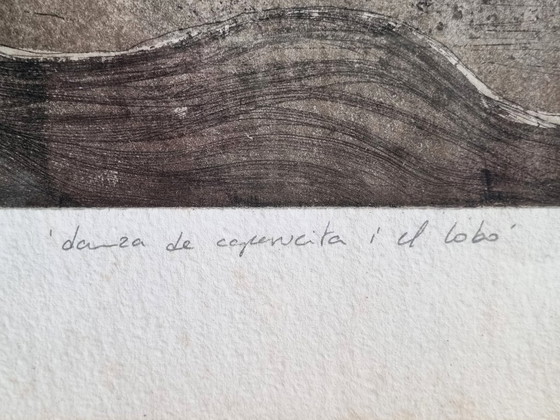 'danza de caperucita i el lobo'